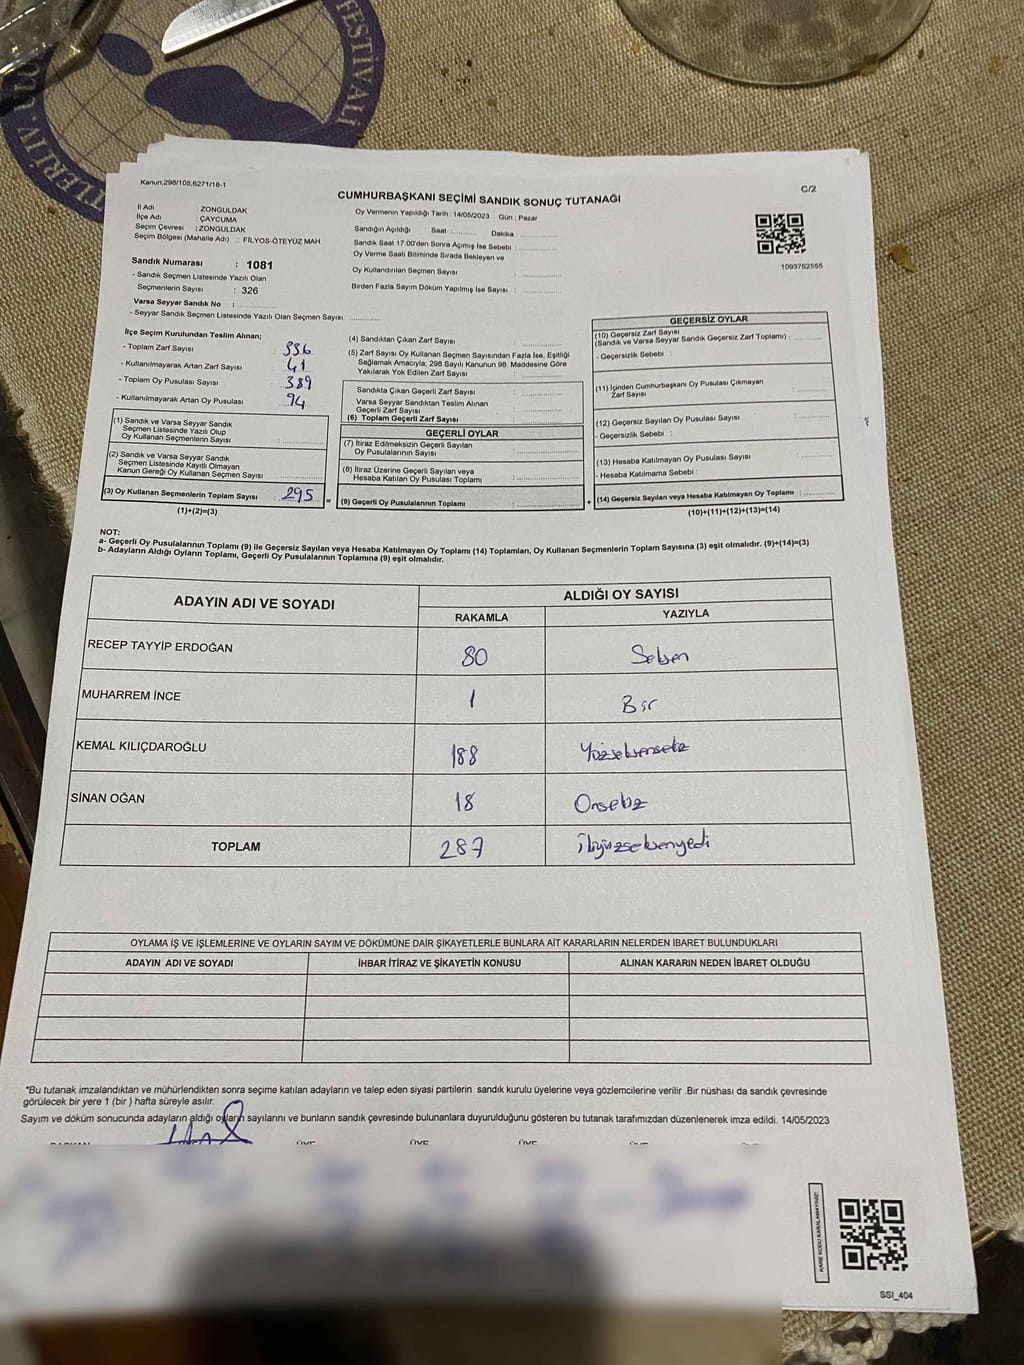 FESTİVALİ
Kanun:298/105,6271/18-1
C/2
CUMHURBAŞKANI SEÇİMİ SANDIK SONUÇ TUTANAĞI
İl Adı : ZONGULDAK
İlçe Adı : ÇAYCUMA
Seçim Çevresi : ZONGULDAK
Seçim Bölgesi (Mahalle Adı) : FİLYOS-ÖTEYÜZ MAH.
Oy Vermenin Yapıldığı Tarih : 14/05/2023 Gün : Pazar
Sandığın Açıldığı Saat ......... Dakika : .........
Sandık Saat 17:00'den Sonra Açımış İse Sebebi : .........
Oy Verme Saati Bitiminde Sırada Bekleyen ve
Oy Kullandırılan Seçmen Sayısı : .........
Birden Fazla Sayım Döküm Yapılmış İse Sayısı : .........
1093762555
Sandık Numarası : 1081
- Sandık Seçmen Listesinde Yazılı Olan
Seçmenlerin Sayısı : 326
Varsa Seyyar Sandık No : .........
- Seyyar Sandık Seçmen Listesinde Yazılı Olan Seçmen Sayısı: .........
İlçe Seçim Kurulundan Teslim Alınan;
- Toplam Zarf Sayısı : 336
- Kullanılmayarak Artan Zarf Sayısı : 41
- Toplam Oy Pusulası Sayısı : 389
- Kullanılmayarak Artan Oy Pusulası : 94
(1) Sandık ve Varsa Seyyar Sandık
Seçmen Listesinde Yazılı Olup
Oy Kullanan Seçmenlerin Sayısı : .........
(2) Sandık ve Varsa Seyyar Sandık
Seçmen Listesinde Kayıtlı Olmayan
Kanun Gereği Oy Kullanan Seçmen Sayısı : .........
(3) Oy Kullanan Seçmenlerin Toplam Sayısı : 295
(1)+(2)=(3)
(4) Sandıktan Çıkan Zarf Sayısı : .........
(5) Zarf Sayısı Oy Kullanan Seçmen Sayısından Fazla İse, Eşitliği
Sağlamak Amacıyla, 298 Sayılı Kanunun 98. Maddesine Göre
Yakılarak Yok Edilen Zarf Sayısı : .........
Sandıkta Çıkan Geçerli Zarf Sayısı : .........
Varsa Seyyar Sandıktan Teslim Alınan
Geçerli Zarf Sayısı : .........
(6) Toplam Geçerli Zarf Sayısı : .........
GEÇERLİ OYLAR
(7) İtiraz Edilmeksizin Geçerli Sayılan
Oy Pusulalarının Sayısı : .........
(8) İtiraz Üzerine Geçerli Sayılan veya
Hesaba Katılan Oy Pusulası Toplamı : .........
= (9) Geçerli Oy Pusulalarının Toplamı : .........
GEÇERSİZ OYLAR
(10) Geçersiz Zarf Sayısı
(Sandık ve Varsa Seyyar Sandık Geçersiz Zarf Toplamı) : .........
- Geçersizlik Sebebi :
(11) İçinden Cumhurbaşkanı Oy Pusulası Çıkmayan
Zarf Sayısı : .........
(12) Geçersiz Sayılan Oy Pusulası Sayısı : .........
- Geçersizlik Sebebi :
(13) Hesaba Katılmayan Oy Pusulası Sayısı : .........
- Hesaba Katılmama Sebebi :
+ (14) Geçersiz Sayılan veya Hesaba Katılmayan Oy Toplamı : .........
(10)+(11)+(12)+(13)=(14)
NOT:
a- Geçerli Oy Pusulalarının Toplamı (9) ile Geçersiz Sayılan veya Hesaba Katılmayan Oy Toplamı (14) Toplamları, Oy Kullanan Seçmenlerin Toplam Sayısına (3) eşit olmalıdır. (9)+(14)=(3)
b- Adayların Aldığı Oyların Toplamı, Geçerli Oy Pusulalarının Toplamına (9) eşit olmalıdır.
ADAYIN ADI VE SOYADI ALDIĞI OY SAYISI
RAKAMLA YAZIYLA
RECEP TAYYİP ERDOĞAN 80 Seksen
MUHARREM İNCE 1 Bir
KEMAL KILIÇDAROĞLU 188 Yüzseksensekiz
SİNAN OĞAN 18 Onsekiz
TOPLAM 287 ikiyüzseksenyedi
OYLAMA İŞ VE İŞLEMLERİNE VE OYLARIN SAYIM VE DÖKÜMÜNE DAİR ŞİKAYETLERLE BUNLARA AİT KARARLARIN NELERDEN İBARET BULUNDUKLARI
ADAYIN ADI VE SOYADI İHBAR İTİRAZ VE ŞİKAYETİN KONUSU ALINAN KARARIN NEDEN İBARET OLDUĞU
*Bu tutanak imzalandıktan ve mühürlendikten sonra seçime katılan adayların ve talep eden siyasi partilerin sandık kurulu üyelerine veya gözlemcilerine verilir .Bir nüshası da sandık çevresinde
görülecek bir yere 1 (bir ) hafta süreyle asılır.
Sayım ve döküm sonucunda adayların aldığı oyların sayılarını ve bunların sandık çevresinde bulunanlara duyurulduğunu gösteren bu tutanak tarafımızdan düzenlenerek imza edildi. 14/05/2023
ÜYE ÜYE ÜYE ÜYE
KARE KODU KARALAMAYINIZ!
SSI_404